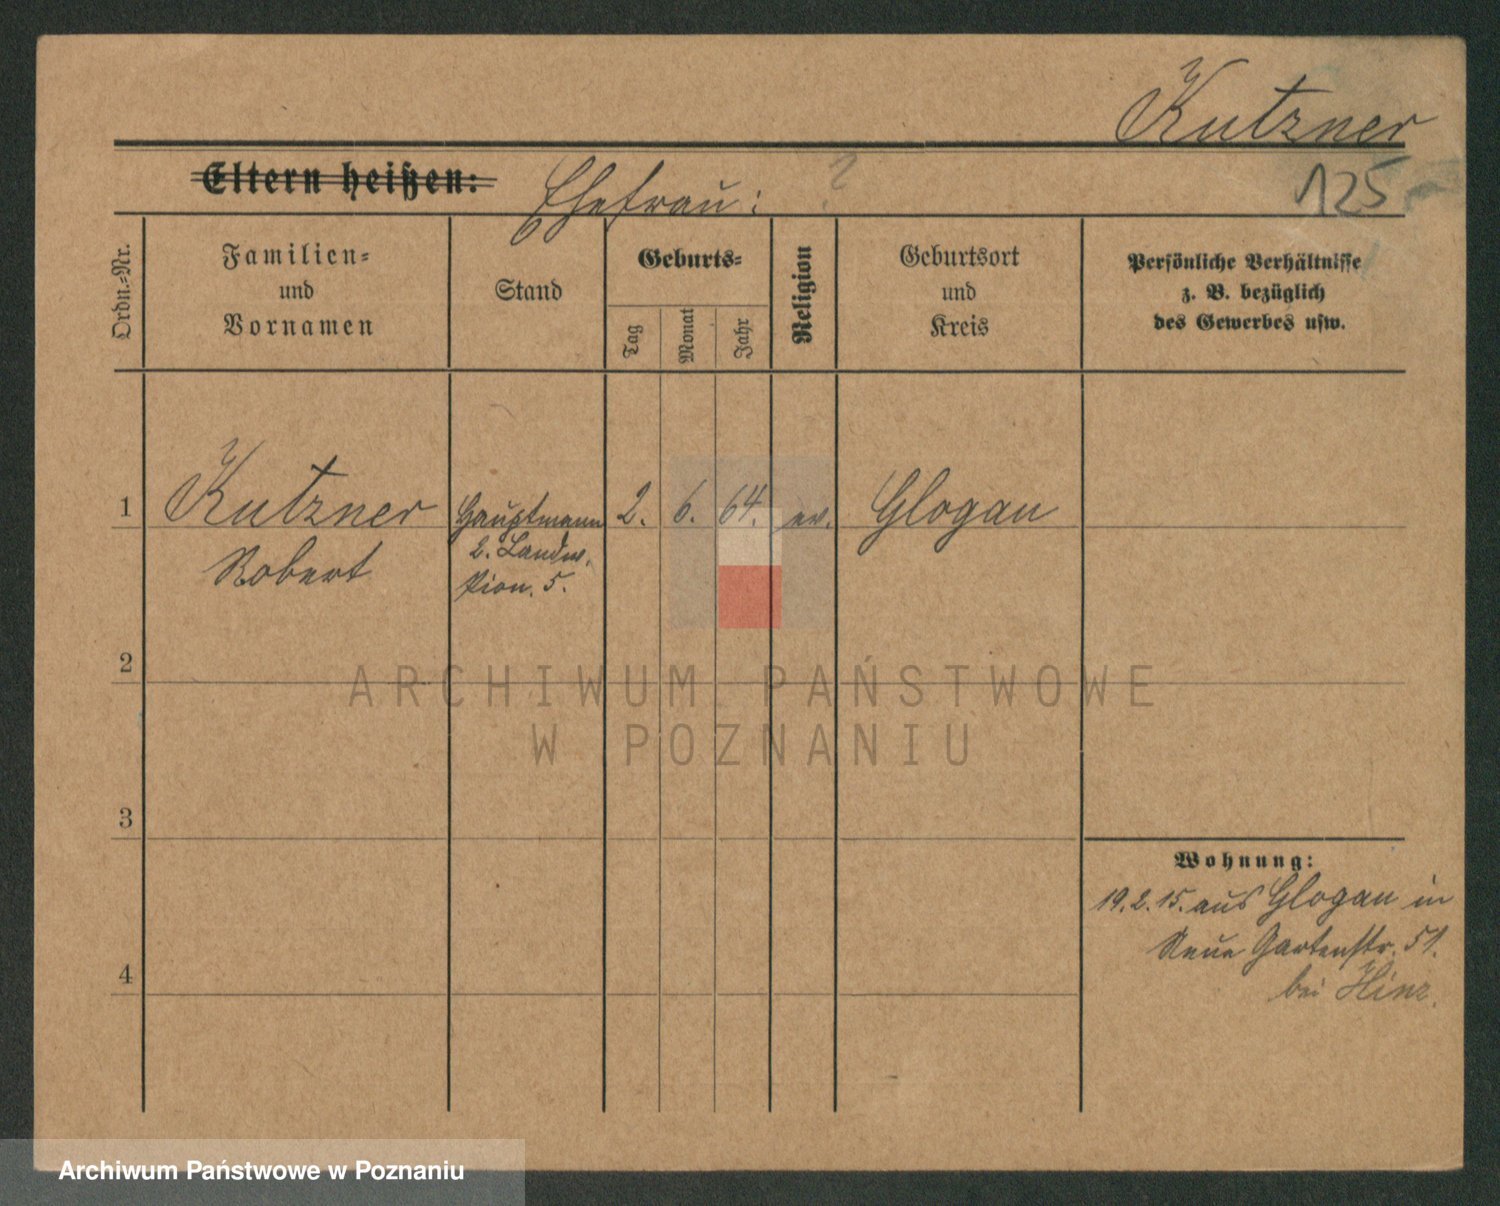 Kutzner
Eltern heißen: Ehefrau: ?
125
Ordn.-Nr.
Familien-
und
Vornamen
Stand
Geburts-
Tag
Monat
Jahr
Religion
Geburtsort
und
Kreis
Persönliche Verhältnisse
z. B. bezüglich
des Gewerbes usw.
1 Kutzner Hauptmann 2. 6. 64. ev. Glogau
Robert
2. Landw.
Pion. 5.
2
ARCHIWUM PAŃSTWOWE
W POZNANIU
3
Wohnung:
19.2.15. aus Glogau in
Neue Gartenstr. 51.
bei Hinz.
4
Archiwum Państwowe w Poznaniu